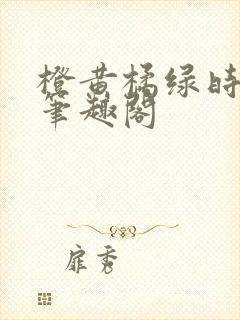 橙黄橘绿时
笔趣阁
扉秀